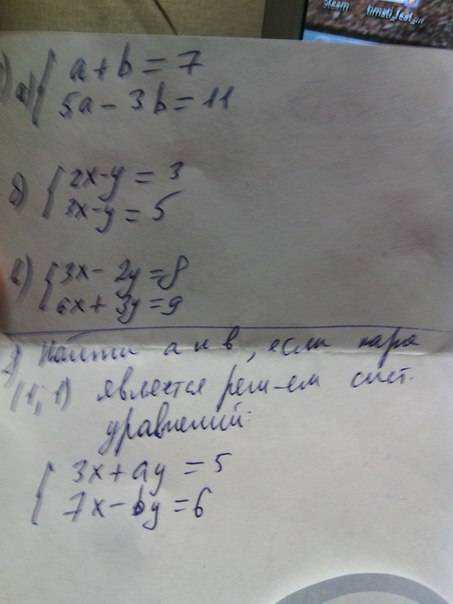 steam
timati_feat_...
1) а) { a + b = 7
5a - 3b = 11
б) { 2x - y = 3
3x - y = 5
в) { 3x - 2y = 8
6x + 3y = 9
2) Найти а и в, если пара
(1; 1) является реш-ем сист.
уравнений:
{ 3x + ay = 5
7x - by = 6